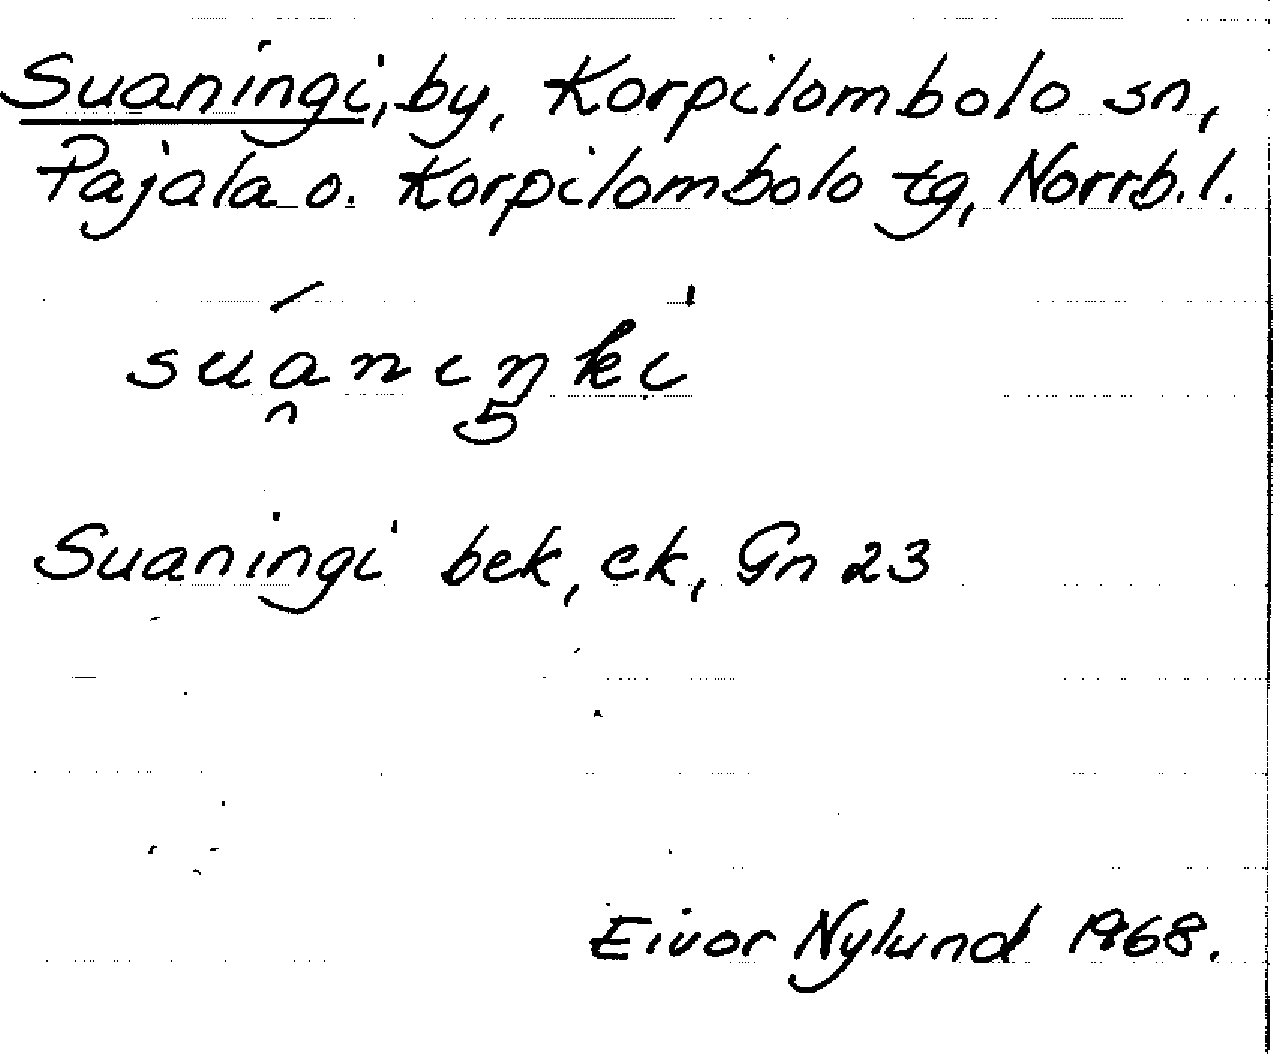 Suaningi, by, Korpilombolo sn,
Pajala o. Korpilombolo tg, Norrb. l.
suáninŋki
Suaningi bek, ek, Gn 23
Eivor Nylund 1968.